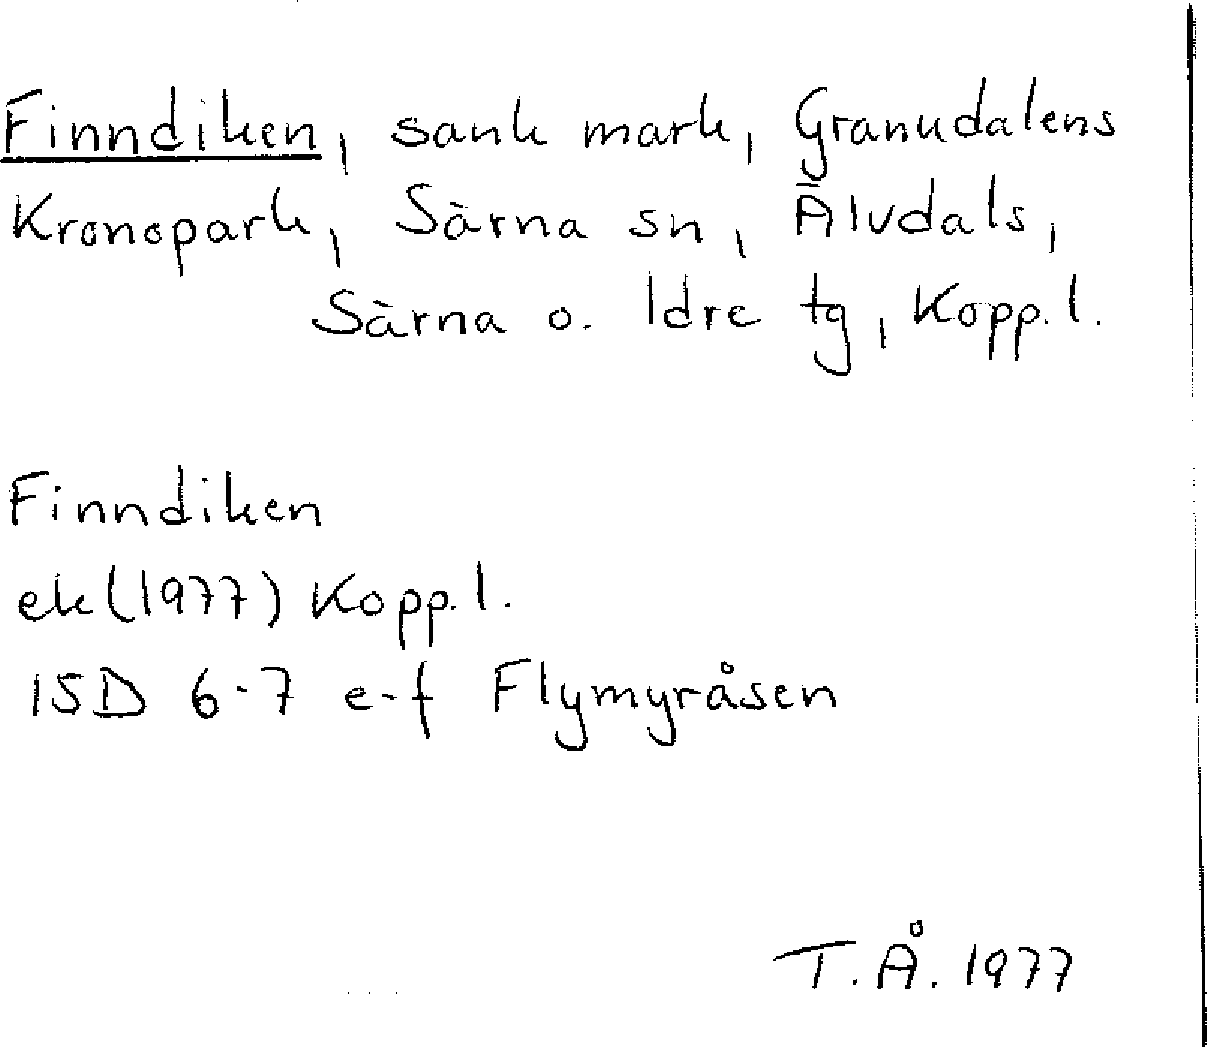 Finndiken, sank mark, Granudalens
Kronopark, Särna sn, Älvdals,
Särna o. Idre tg, Kopp. l.
Finndiken
ek (1977) Kopp. l.
15D 6-7 e-f Flymyråsen
T. Å. 1977